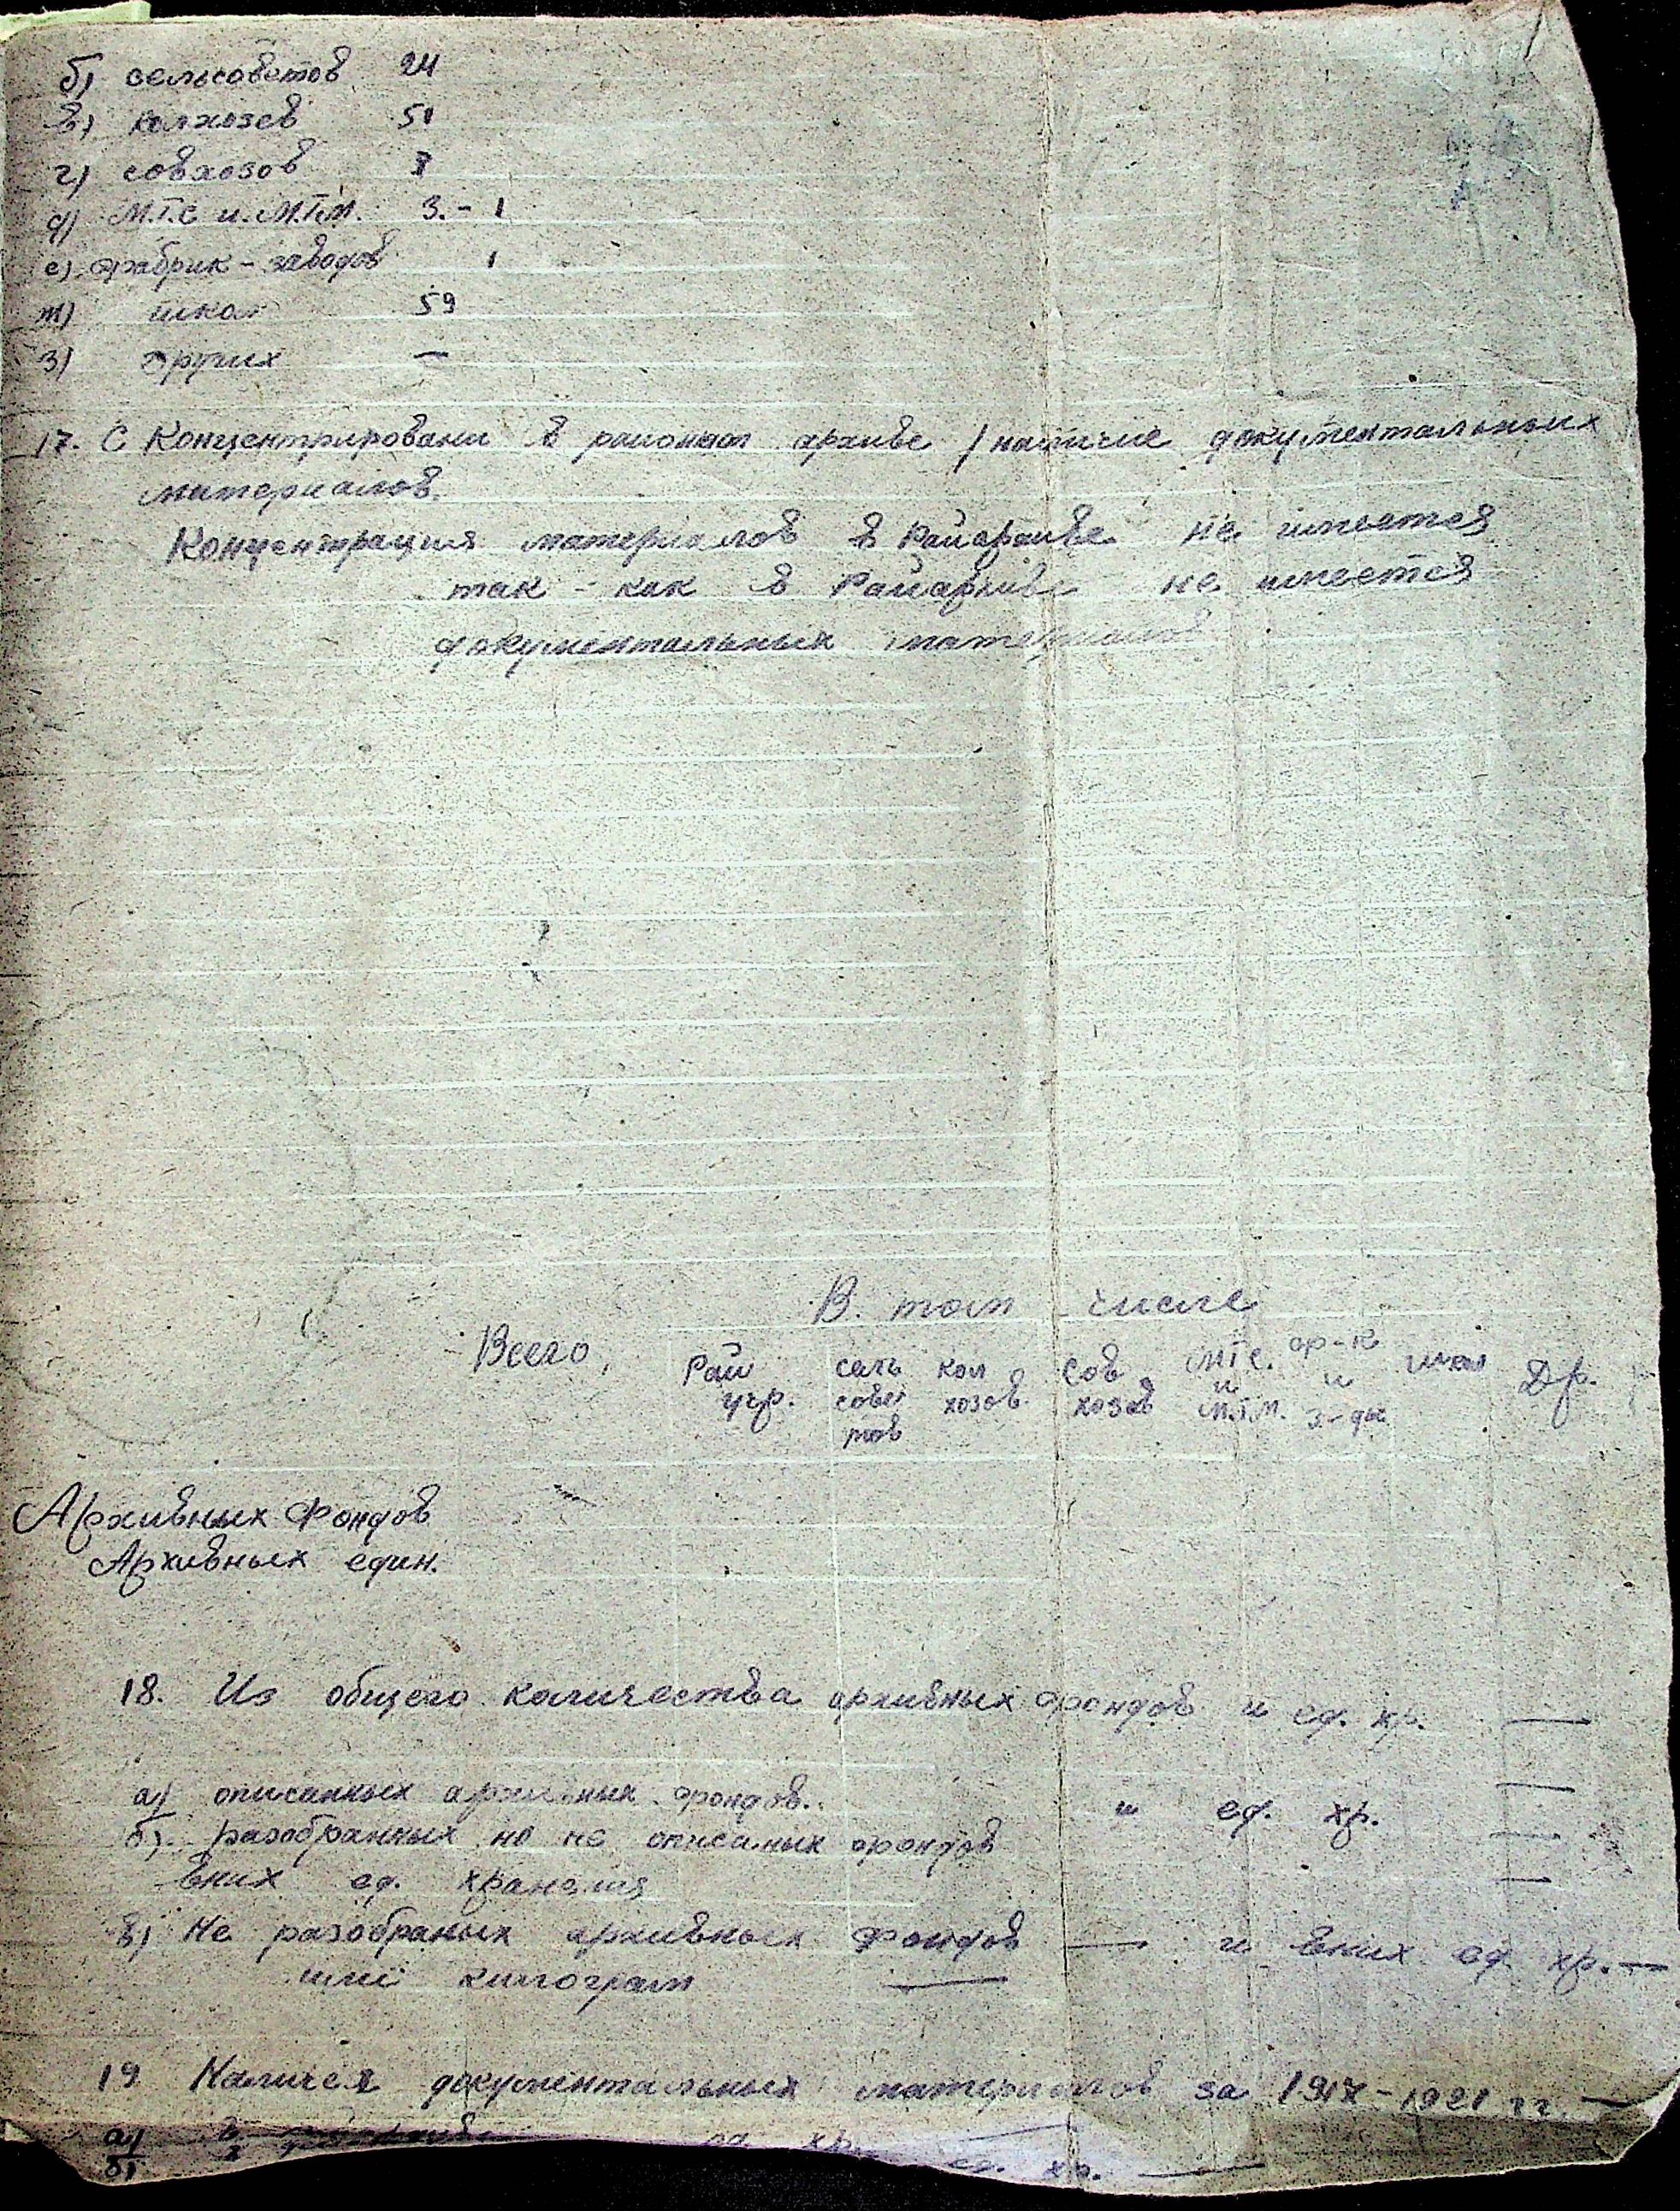 б) сельсоветов 24
в) колхозов 51
г) совхозов
д) М.Т.С и. М.Т.М. 3. - 1
е) фабрик - заводов 1
ж) школ 59
з) других —
17. С Концентрировани в районом архиве / наличие документальных
материалов.
Концентрация материалов в Райархиве не имеется
так - как в Райархиве не имеется
документальных материалов
В. том числе
Всего, Рай учр. сель советов кол хозов. Сов хозов МТС. и М.Т.М. ф-к и з-дов школ Др.
Архивных Фондов
Архивных един.
18. Из общего количества архивных фондов и ед. хр. —
а) описанных архивных фондов. и ед. хр. —
б). разобранных но не описаных фондов —
вних ед. хранения —
в) Не разобраных архивных Фондов — и вних ед. хр. —
или килограм —
19 Наличея документальных материалов за 1917-1921 гг. —
а) в ед. хр. —
б) ед. хр. —